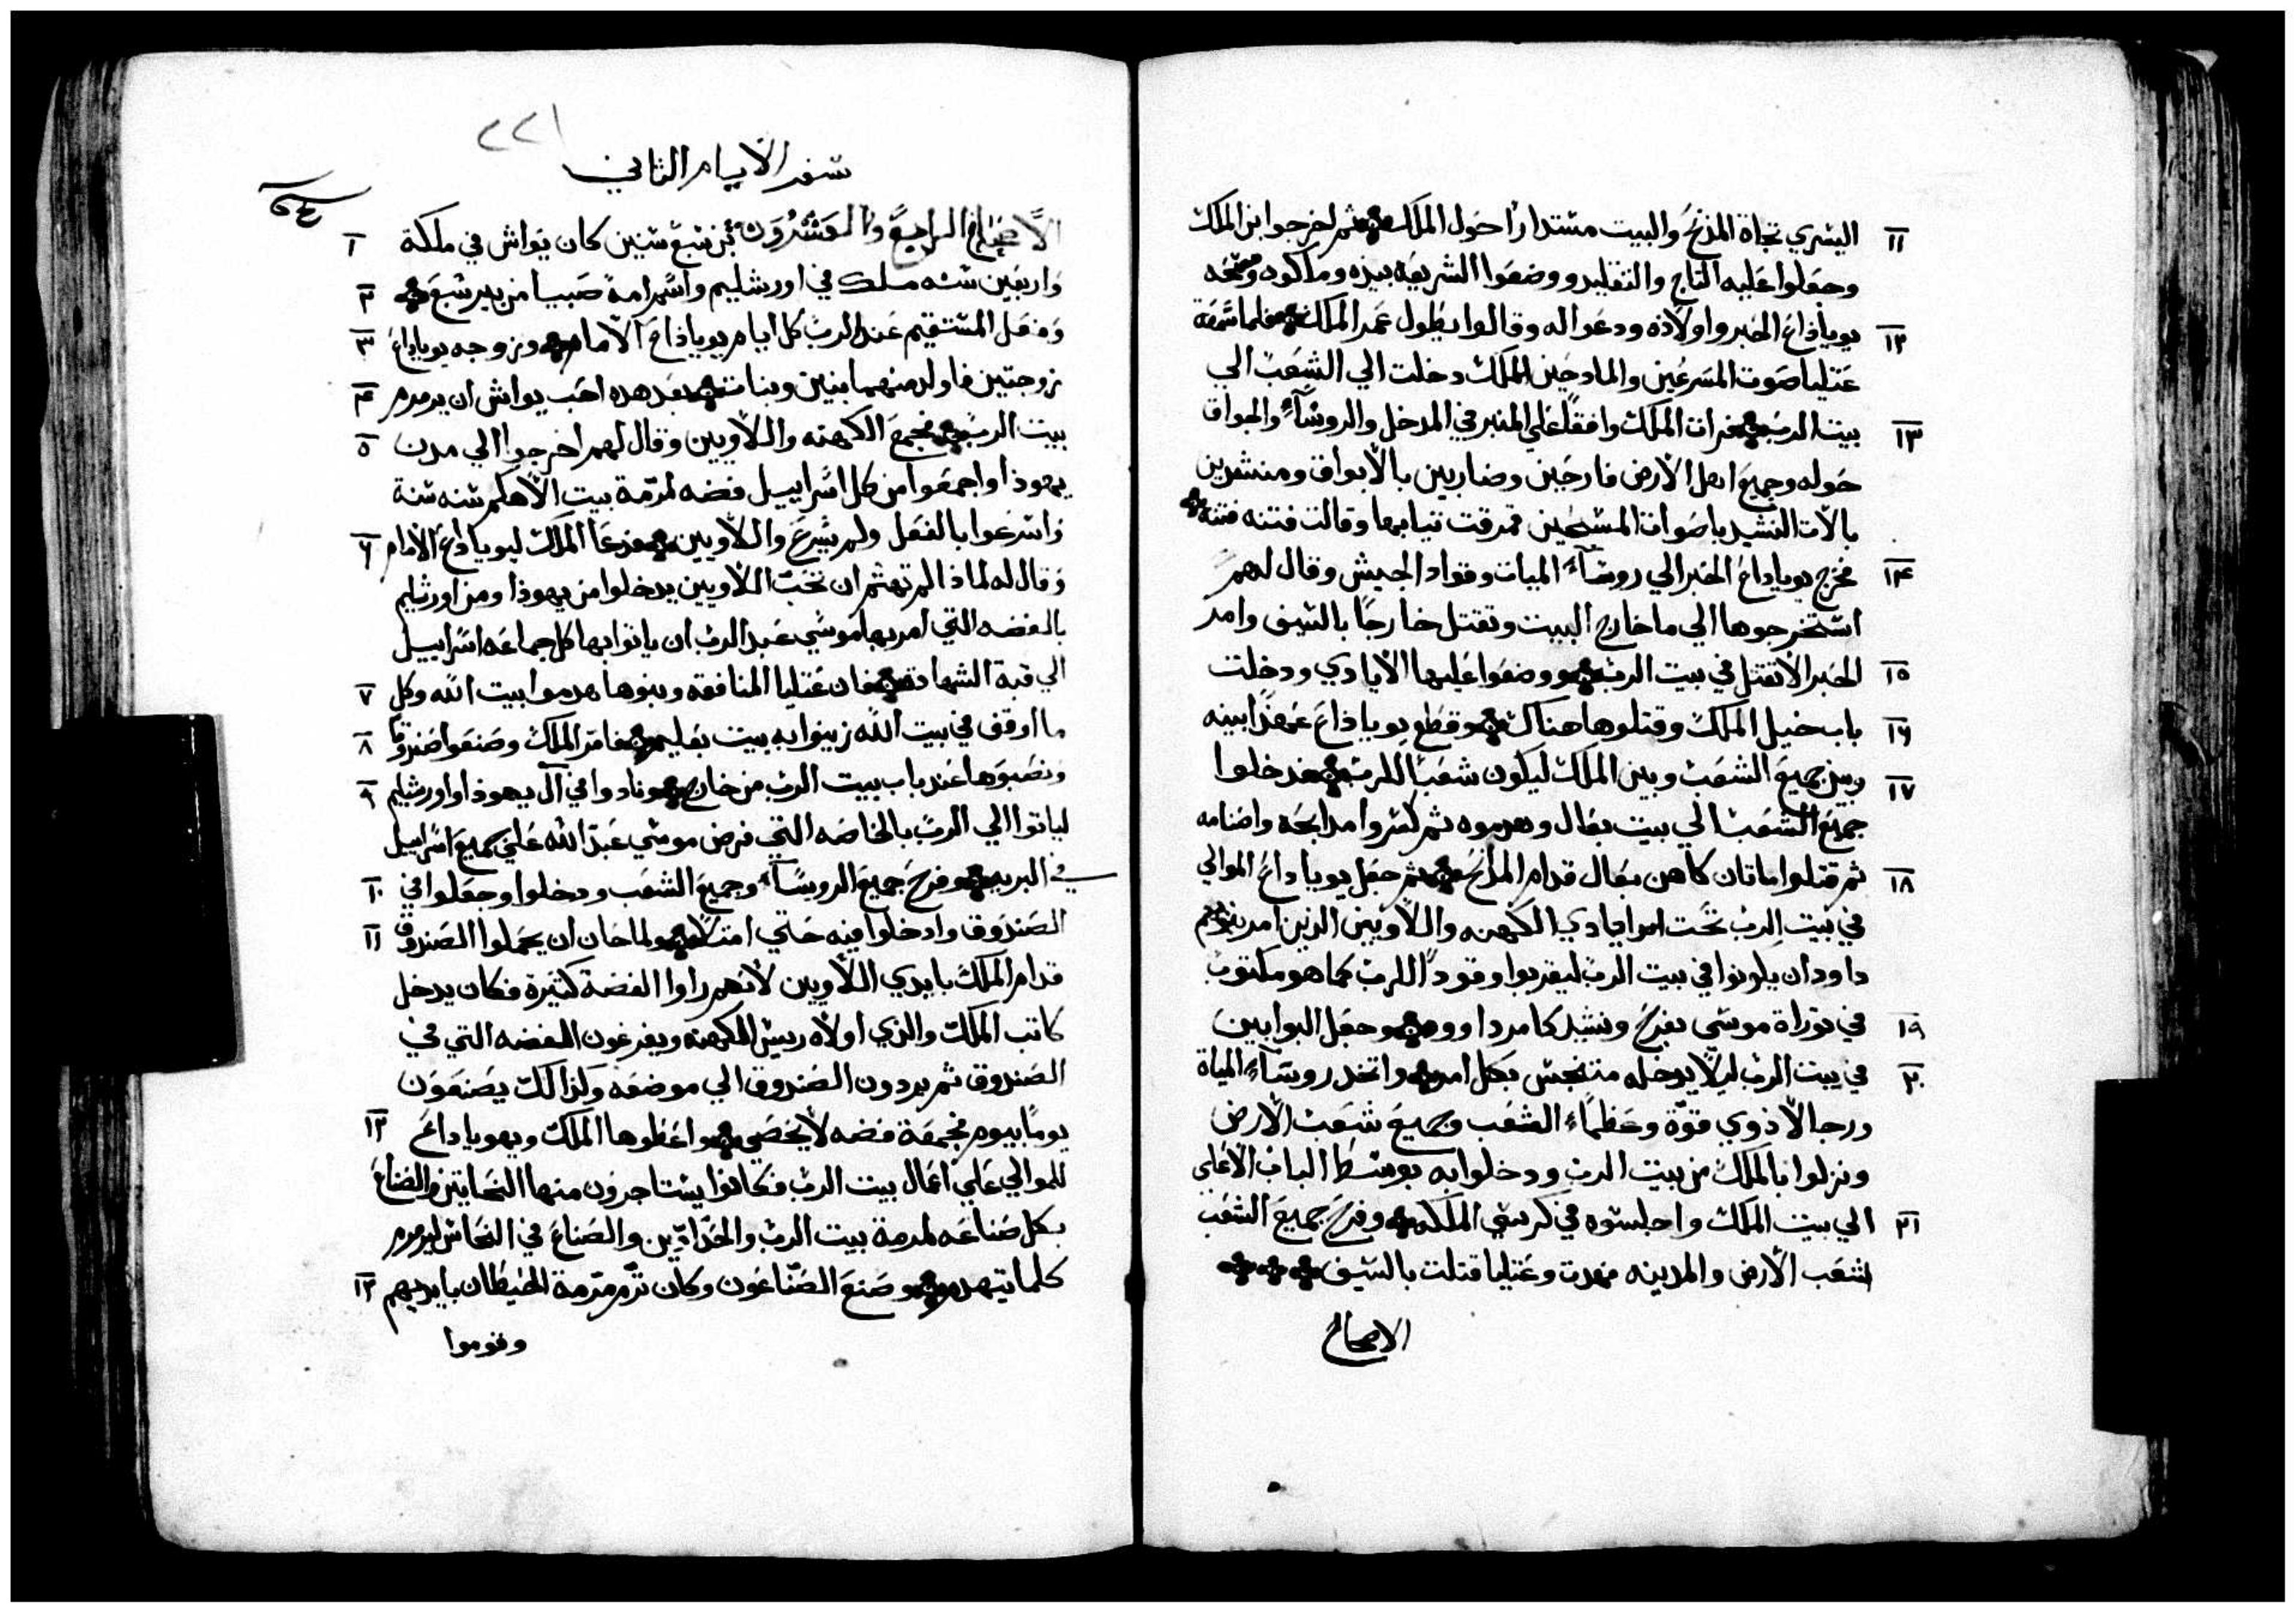 ١١ اليسري تجاة المذبح والبيت مستدارا حول الملك ثم اخرجوا ابن الملك
وجعلوا عليه التاج والتقليد ووضعوا الشريعه بيده وملكوه ومسحه
١٢ يوياداع الحبر واولاده ودعوا له وقالوا يطول عمر الملك فلما سمعة
عتليا صوت المسرعين والمادحين الملك دخلت الي الشعب الي
١٣ بيت الرب فرات الملك واقفا علي المنبر في المدخل والروسآء والجواق
حوله وجميع اهل الارض فارحين وضاربين بالابواق ومنشدين
بالات النشيد باصوات المسبحين فمزقت ثيابها وقالت فتنه فتنه
١٤ فخرج يوياداع الحبر الي روسآء الميات وقواد الجيش وقال لهم
استخرجوها الي ما خارج البيت وتقتل خارجا بالسيف وامر
١٥ الحبر الا تقتل في بيت الرب ووضعوا عليها الايادي ودخلت
١٦ باب خيل الملك وقتلوها هناك وقطع يوياداع عهدا بينه
١٧ وبين جميع الشعب وبين الملك ليكون شعبا للرب فدخلوا
جميع الشعب الي بيت بعال وهدموه ثم كسروا مدابحة واصنامه
١٨ ثم قتلوا ماتان كاهن بعال قدام المذابح ثم جعل يوياداع الموالي
في بيت الرب تحت ايادي الكهنه واللاويين الذين امر بنوهم
داود ان يكونوا في بيت الرب ليقربوا وقودا للرب كما هو مكتوب
١٩ في توراة موسي بفرح ونشيد كامر داوود وجعل البوابين
٢٠ في بيت الرب ليلا يدخله متنجس بكل امر واتخد روسآء المياة
ورجالا ذوي قوة وعظمآء الشعب وجميع شعب الارض
ونزلوا بالملك من بيت الرب ودخلوا به بوسط الباب الاعلى
٢١ الي بيت الملك واجلسوه في كرسي الملكه وفرح جميع الشعب
شعب الارض والمدينه مهدت وعتليا قتلت بالسيف
الاصحاح
٢٢١
سفر الايام الثاني
الاصحاح الرابع والعشرون بن سبع سنين كان يواش في ملكة ١
واربعين سنه ملك في اورشليم واسم امه صبيا من بير سبع ٢
وفعل المستقيم عند الرب كل ايام يوياداع الامام وزوجه يوياداع ٣
زوجتين فاولد منهما بنين وبنات بعد هده احب يواش ان يرمرم ٤
بيت الرب فجمع الكهنه واللاويين وقال لهم اخرجوا الي مدن ٥
يهوذا واجمعوا من كل اسراييل فضه لمرمة بيت الاهكم سنه سنة
واسرعوا بالفعل ولم يسرع واللاويين فدعا الملك ليوياداع الامام ٦
وقال له لماذا لم تهتم ان تخب اللاويين يدخلوا من يهوذا ومن اورشليم
بالفضه التي امر بها موسي عبد الرب ان ياتوا بها كل جماعه اسراييل
الي قبة الشهادة فان عتليا المنافقه وبنوها هدموا بيت الله وكل ٧
ما اوقف في بيت الله زينوا به بيت بعليم فامر الملك وصنعوا صندوقا ٨
ونصبوها عند باب بيت الرب من خارج ونادوا في آل يهوذا واورشليم ٩
لياتوا الي الرب بالخاصه التي فرض موسي عبد الله علي جميع اسراييل
في البريه وفرح جميع الروسآء وجميع الشعب ودخلوا وجعلوا في ١٠
الصندوق وادخلوا فيه حتي امتلا ولما حان ان يحملوا الصندوق ١١
قدام الملك بايدي اللاويين لانهم راوا الفضة كثيرة فكان يدخل
كاتب الملك والذي اولاه ريس الكهنه ويفرغون الفضه التي في
الصندوق ثم يردون الصندوق الي موضعه وكذالك يصنعون
يوما بيوم فجمعة فضه لا تحصي واعطوها الملك ويهوياداع ١٢
للموالي علي اعمال بيت الرب فكانوا يستاجرون منها النحاتين والصناع
بكل صناعه لمرمة بيت الرب والحدادين والصناع في النحاس ليرمرم
كلما يتهدم وصنع الصناعون وكان ترمرمة الحيطان بايديهم ١٣
وقوموا